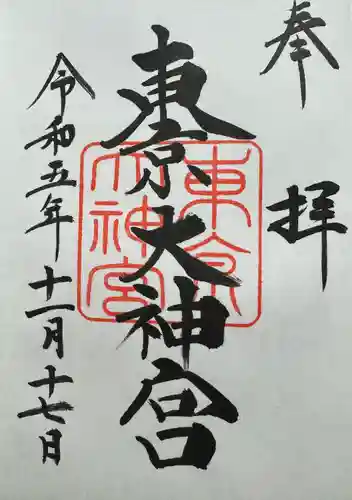 奉拝
東京大神宮
東京
大神宮
令和五年十一月十七日